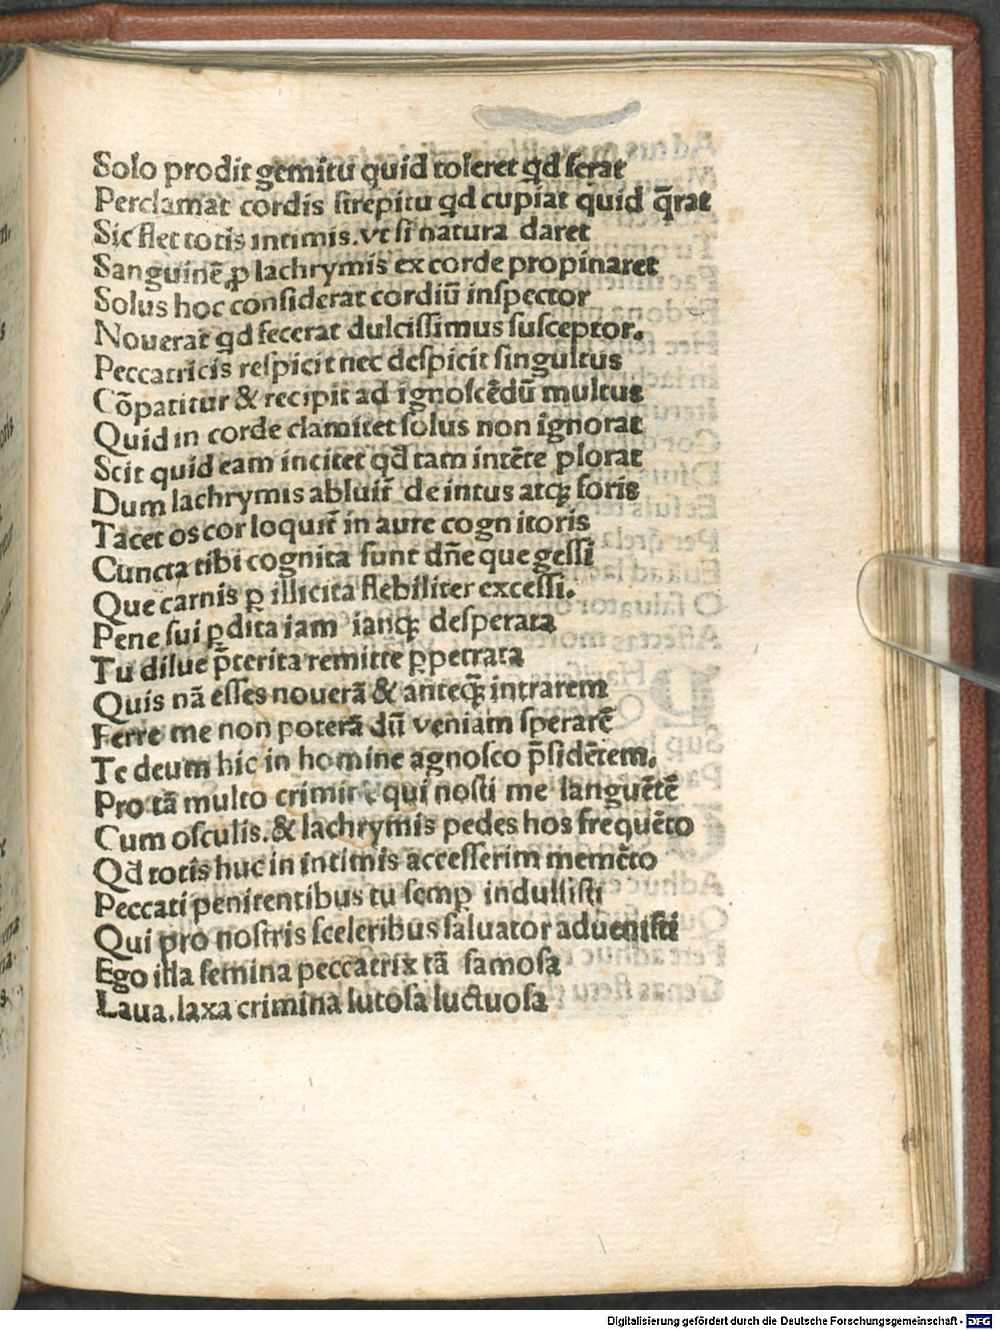 Solo prodit gemitu quid toleret qd ferat
Perclamat cordis strepitu qd cupiat quid q̄rat
Sic flet totis intimis. vt si natura daret
Sanguinē ꝓ lachrymis ex corde propinaret
Solus hoc considerat cordiū inspector
Nouerat qd fecerat dulcissimus susceptor.
Peccatricis respicit nec despicit singultus
Cōpatitur & recipit ad ignoscēdū multus
Quid in corde clamitet solus non ignorat
Scit quid eam incitet qd tam intēte plorat
Dum lachrymis abluit̄ de intus atqꝫ foris
Tacet os cor loquit̄ in aure cognitoris
Cuncta tibi cognita sunt dn̄e que gessi
Que carnis ꝑ illicita flebiliter excessi.
Pene fui ꝑdita iam ianqꝫ desperata
Tu dilue p̄terita remitte ꝑpetrata
Quis nā esses nouerā & anteqꝫ̄ intrarem
Ferre me non poterā dū veniam sperarē
Te deum hic in homine agnosco p̄sidētem.
Pro tā multo crimine qui nosti me languētē
Cum osculis. & lachrymis pedes hos frequēto
Qd totis huc in intimis accesserim memēto
Peccati penitentibus tu semꝑ indulsisti
Qui pro nostris sceleribus saluator aduenisti
Ego illa femina peccatrix tā famosa
Laua. laxa crimina lutosa luctuosa
Digitalisierung gefördert durch die Deutsche Forschungsgemeinschaft - DFG